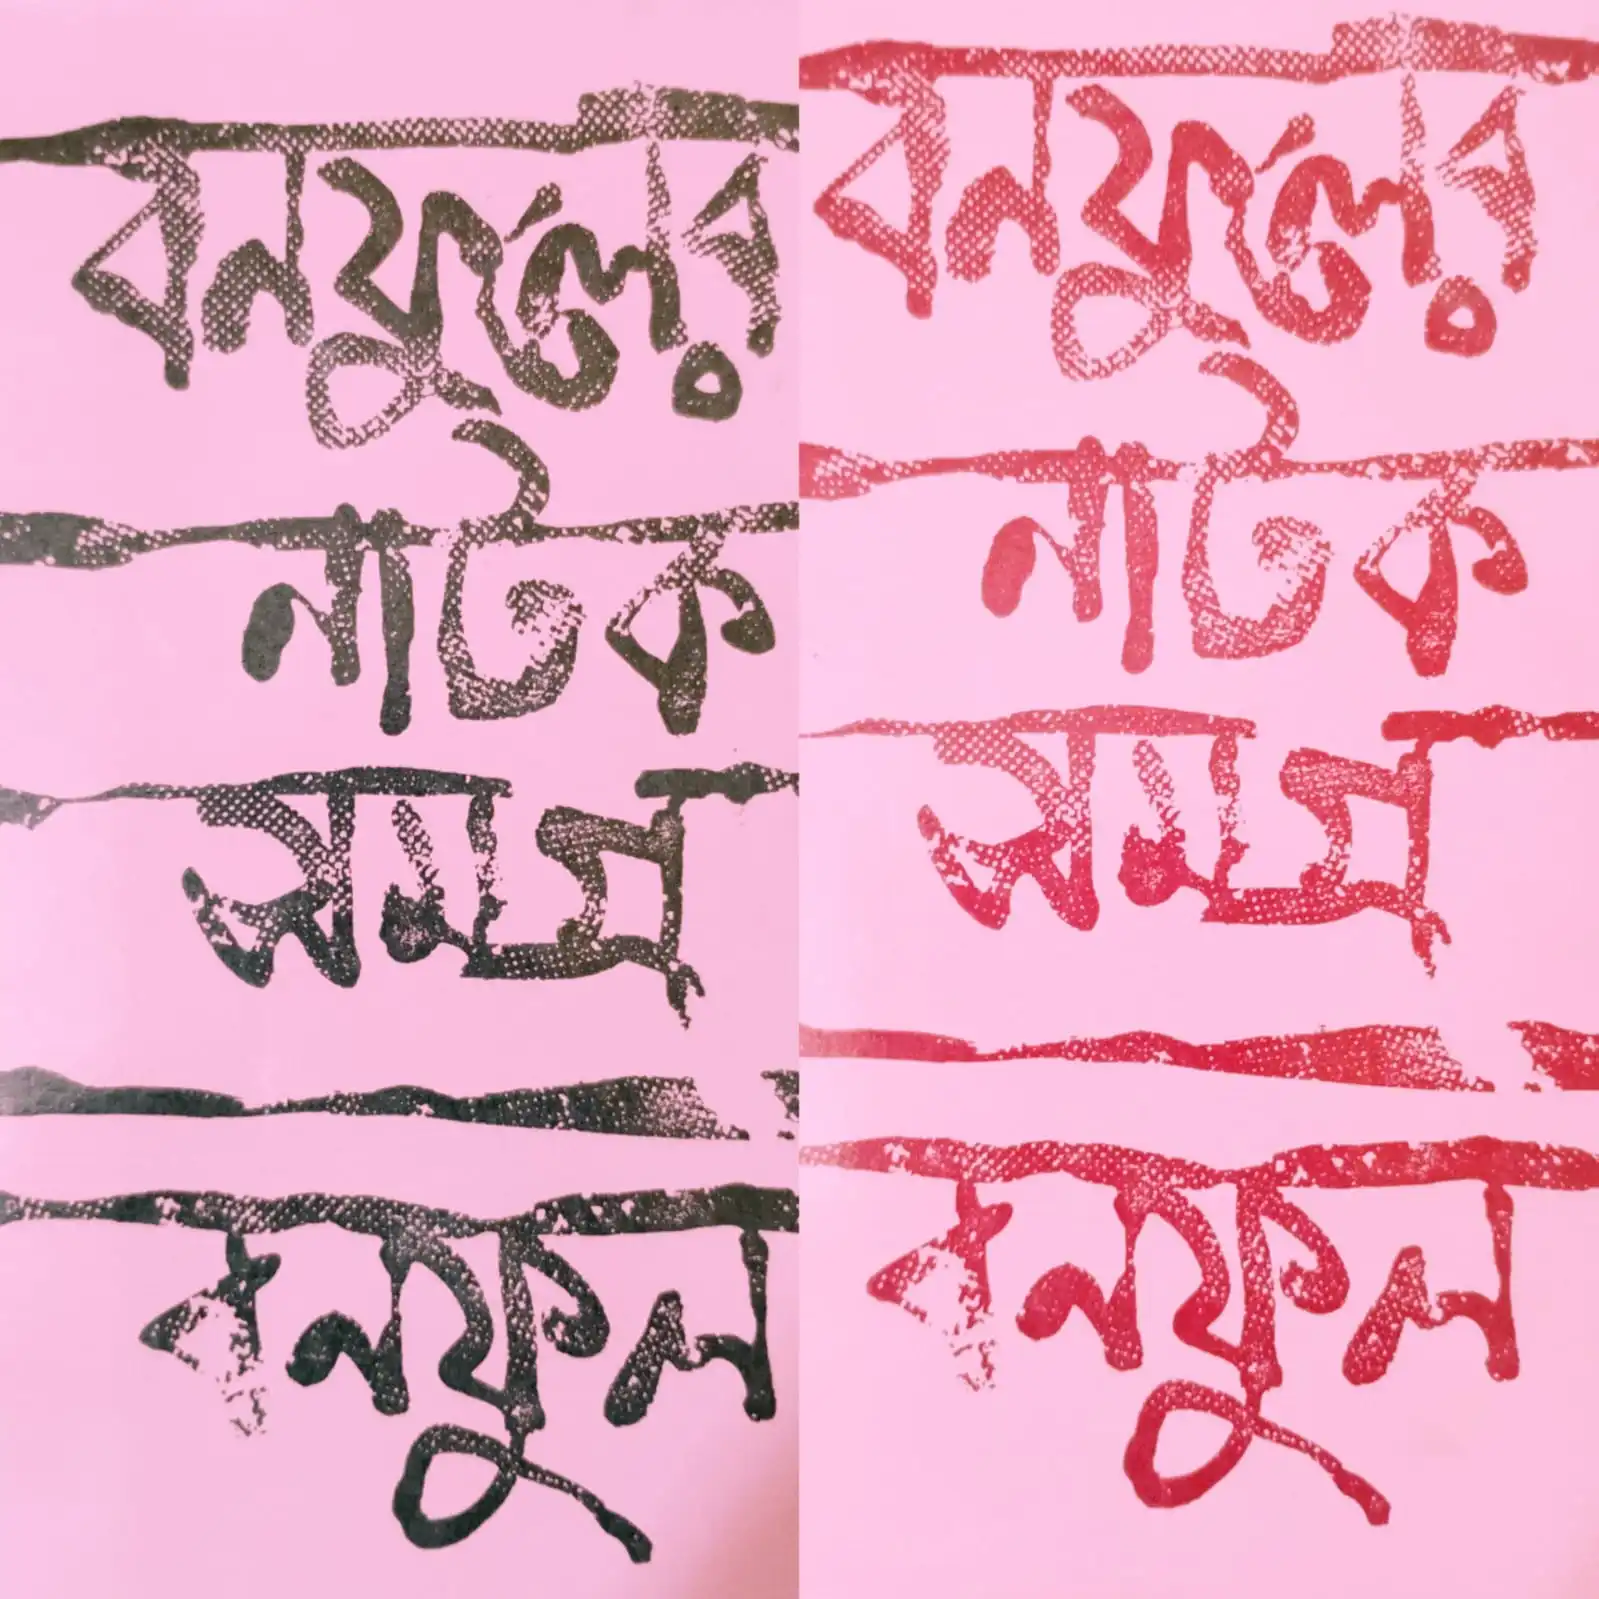 বনফুলের
নাটক
সমগ্র
বনফুল
বনফুলের
নাটক
সমগ্র
বনফুল